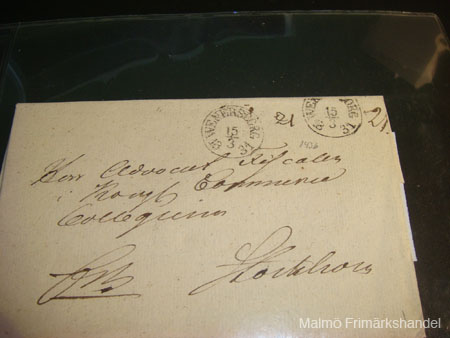 WENERSBORG
15
3
31
21
WENERSBORG
15
3
31
21
Herr Advocat Fiscalen
i Kongl Commerce
Collegium
Stockholm
Malmö Frimärkshandel